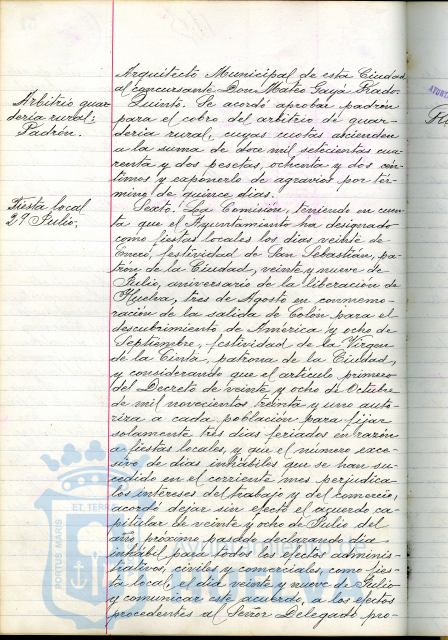 Arquitecto Municipal de esta Ciudad
al concursante Don Mateo Gayá Prado.
Arbitrio guar-
dería rural:
Padrón.
Quinto. Se acordó aprobar padrón
para el cobro del arbitrio de guar-
dería rural, cuyas cuotas ascienden
a la suma de doce mil setecientas cua-
renta y dos pesetas, ochenta y dos cén-
timos y exponerlo de agravios por tér-
mino de quince días.
Fiesta local
29 Julio.
Sexto. La Comisión, teniendo en cuen-
ta que el Ayuntamiento ha designado
como fiestas locales los días veinte de
Enero, festividad de San Sebastián, pa-
trón de la Ciudad, veinte y nueve de
Julio, aniversario de la liberación de
Huelva, tres de Agosto en conmemo-
ración de la salida de Colón para el
descubrimiento de América y ocho de
Septiembre, festividad de la Virgen
de la Cinta, patrona de la Ciudad,
y considerando que el artículo primero
del Decreto de veinte y ocho de Octubre
de mil novecientos treinta y uno auto-
riza a cada población para fijar
solamente tres días feriados en razón
a fiestas locales, y que el número exce-
sivo de días inhábiles que se han su-
cedido en el corriente mes perjudica
los intereses del trabajo y del comercio,
acordó dejar sin efecto el acuerdo ca-
pitular de veinte y ocho de Julio del
año próximo pasado declarando día
inhábil para todos los efectos adminis-
trativos, civiles y comerciales, como fies-
ta local, el día veinte y nueve de Julio
y comunicar este acuerdo, a los efectos
procedentes al Señor Delegado pro-
PORTUS MARIS
ET TERR